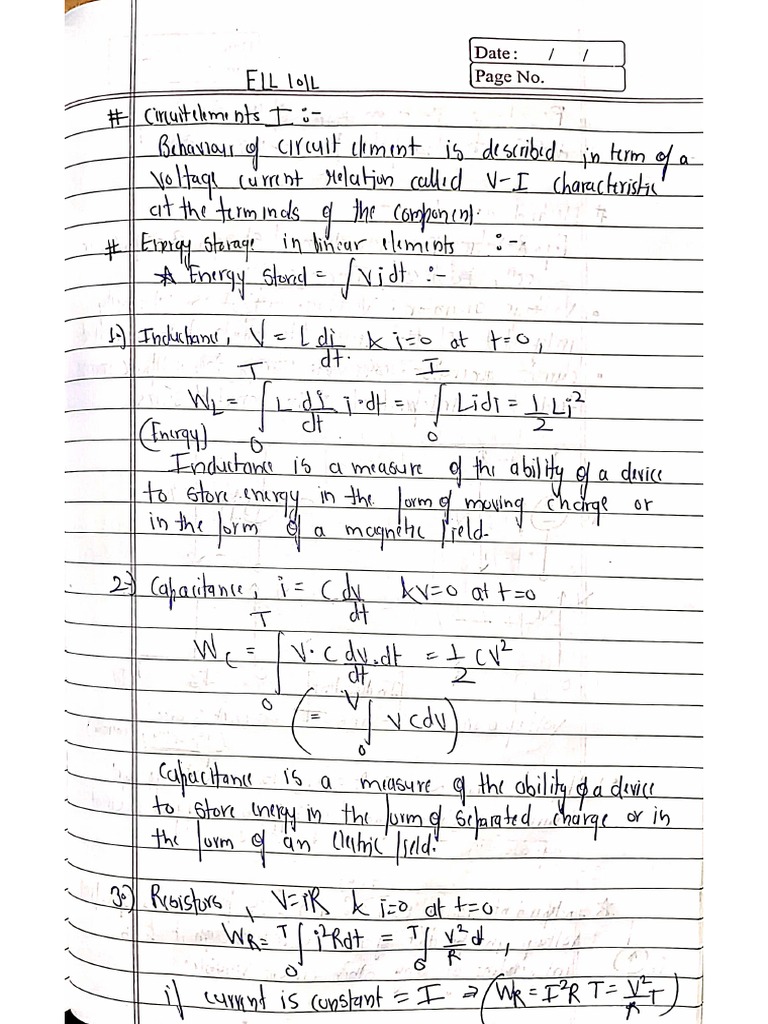 Date: / /
Page No.
ELL 101L
# Circuit elements I :-
Behaviour of circuit element is described in term of a
voltage current relation called V-I characteristic
at the terminals of the component.
# Energy storage in linear elements :-
* Energy stored = ∫Vidt :-
1.) Inductance, V = L di/dt & i=0 at t=0,
W_L = ∫₀ᵀ L di/dt i·dt = ∫₀ᴵ Lidi = 1/2 Li²
(Energy)
Inductance is a measure of the ability of a device
to store energy in the form of moving charge or
in the form of a magnetic field.
2.) Capacitance, i = C dv/dt & v=0 at t=0
W_C = ∫₀ᵀ V·C dv/dt·dt = 1/2 CV²
(= ∫₀ⱽ VCdV)
Capacitance is a measure of the ability of a device
to store energy in the form of separated charge or in
the form of an electric field.
3.) Resistors, V=iR & i=0 at t=0
W_R = ∫₀ᵀ i²Rdt = ∫₀ᵀ V²/R dt,
if current is constant = I ⇒ (W_R = I²RT = V²/R T)